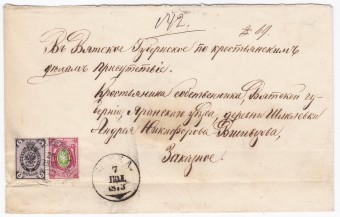 № 42.
№ 69.
Въ Вятское Губернское по крестьянскимъ
дѣламъ Присутствіе.
Крестьянина собственника, Вятской гу-
берніи, Яранскаго уѣзда, деревни
Андрея Никифорова
Заказное.
7
ІЮЛ.
1873